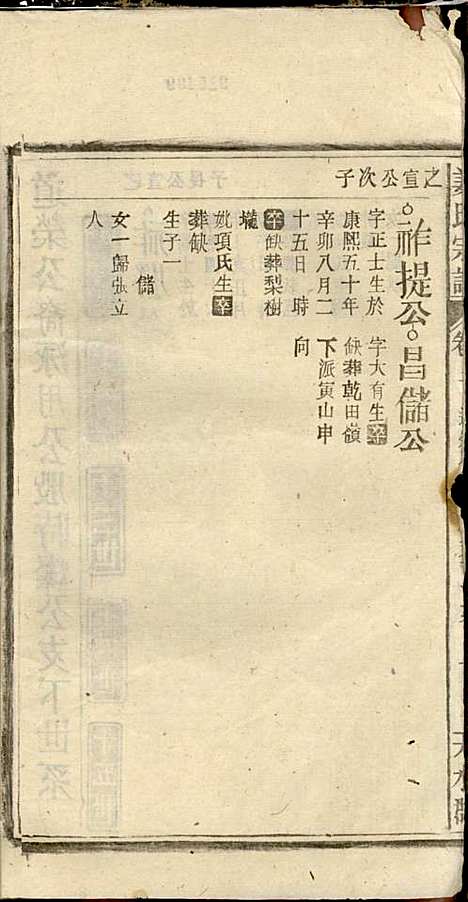 姜氏宗譜 卷
天水郡
之宣公次子
祚提公
字正士生於
康熙五十年
辛卯八月二
十五日 時
卒缺葬梨樹
壠
妣項氏生卒
葬缺
生子一
儲
女一歸張立
人
昌儲公
字大有生卒
缺葬乾田嶺
下派寅山申
向